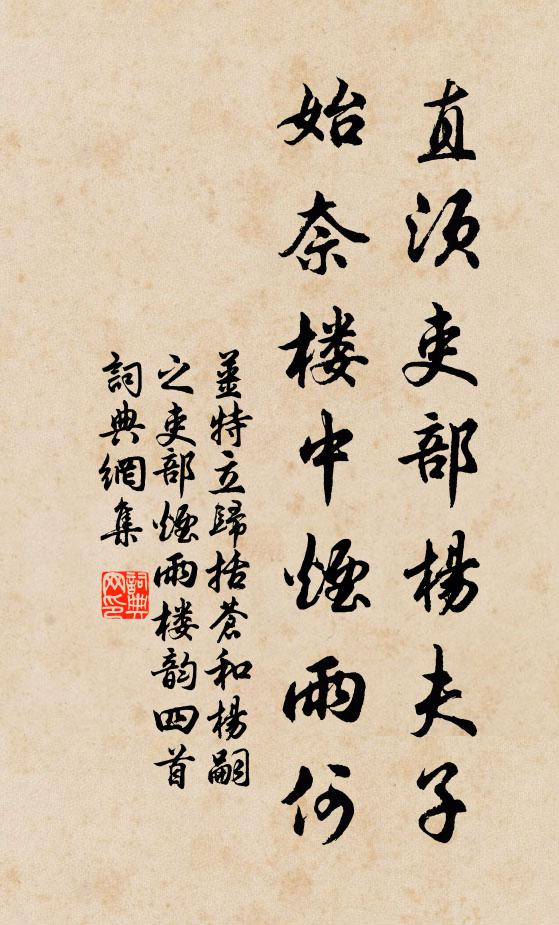 直须吏部楊夫子
始奈楼中煙雨何
薑特立歸括蒼和楊嗣
之吏部煙雨楼韵四首
詞典網集
詞典网印